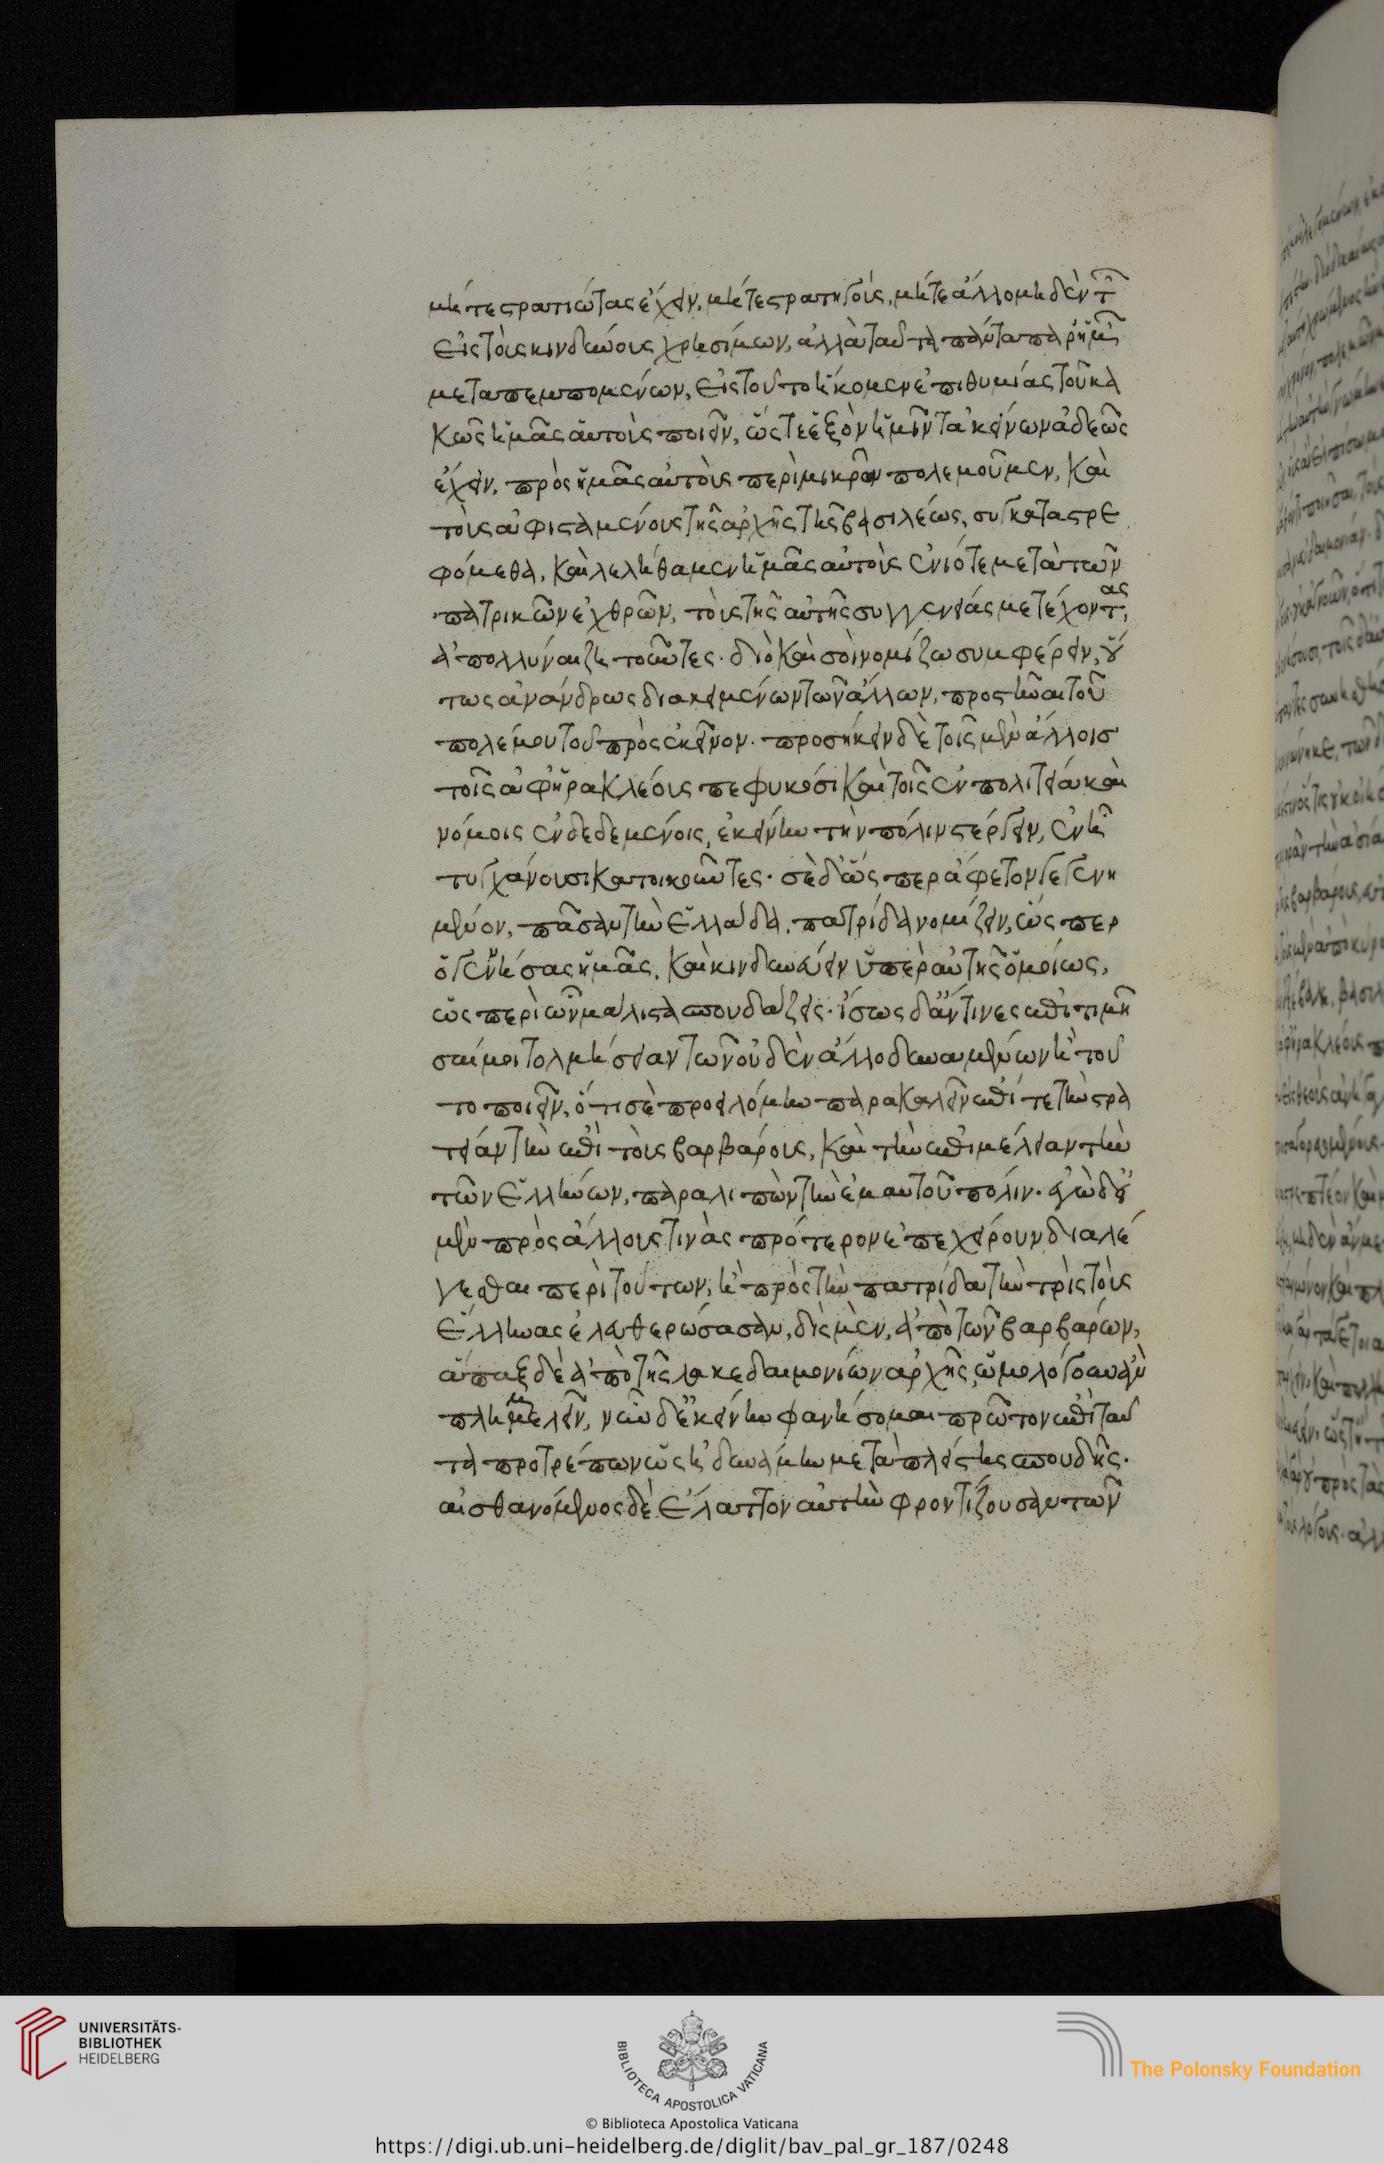 μήτε στρατιώτας ἔχειν, μήτε στρατηγοὺς, μήτε ἄλλο μηδὲν τῶν
εἰς τοὺς κινδύνους χρησίμων, ἀλλὰ ταῦτα πάντα παρ' ἡμῶν
μεταπεμπομένων, εἰς τοῦτο ἥκομεν ἐπιθυμίας τοῦ κα
κῶς ἡμᾶς αὐτοὺς ποιεῖν, ὥστε ἐξὸν ἡμῖν τἀκείνων ἀδεῶς
ἔχειν, πρὸς ἡμᾶς αὐτοὺς περὶ μικρῶν πολεμοῦμεν, καὶ
τοὺς ἀφισταμένους τῆς ἀρχῆς τῆς βασιλέως, συγκαταστρε
φόμεθα, καὶ λελήθαμεν ἡμᾶς αὐτοὺς ἐνίοτε μετὰ τῶν
πατρικῶν ἐχθρῶν, τοὺς τῆς αὐτῆς συγγενείας μετέχοντας,
ἀπολλύναι ζητοῦντες. διὸ καὶ σοὶ νομίζω συμφέρειν, οὕ
τως ἀνάνδρως διακειμένων τῶν ἄλλων, προστῆναι τοῦ
πολέμου τοῦ πρὸς ἐκεῖνον. προσήκειν δὲ τοῖς μὲν ἄλλοις
τοῖς ἀφ' Ἡρακλέους πεφυκόσι καὶ τοῖς ἐν πολιτείᾳ καὶ
νόμοις ἐνδεδεμένοις, ἐκείνην τὴν πόλιν στέργειν, ἐν ᾗ
τυγχάνουσι κατοικοῦντες. σὲ δ' ὥσπερ ἄφετον γεγενη
μένον, πᾶσαν τὴν Ἑλλάδα, πατρίδα νομίζειν, ὥσπερ
ὁ γεννήσας ἡμᾶς, καὶ κινδυνεύειν ὑπὲρ αὐτῆς ὁμοίως,
ὥσπερὶ ὧν μάλιστα σπουδάζεις. ἴσως δ' ἄν τινες ἐπιτιμῆ
σαί μοι τολμήσειαν τῶν οὐδὲν ἄλλο δυναμένων ἢ τοῦ
το ποιεῖν, ὅτι σὲ προειλόμην παρακαλεῖν ἐπί τε τὴν στρα
τείαν τὴν ἐπὶ τοὺς βαρβάρους, καὶ τὴν ἐπιμέλειαν τὴν
τῶν Ἑλλήνων, παραλιπὼν τὴν ἐμαυτοῦ πόλιν. ἐγὼ δ' εἰ
μὲν πρὸς ἄλλους τινὰς πρότερον ἐπεχείρουν διαλέ
γεσθαι περὶ τούτων, ἢ πρὸς τὴν πατρίδα τὴν τρὶς τοὺς
Ἕλληνας ἐλευθερώσασαν, δὶς μὲν, ἀπὸ τῶν βαρβάρων,
ἅπαξ δὲ ἀπὸ τῆς λακεδαιμονίων ἀρχῆς, ὡμολόγουν ἂν
πλημμελεῖν, νῦν δ' ἐκείνην φανήσομαι πρῶτον ἐπὶ ταῦ
τα προτρέπων ὡς ἠδυνάμην μετὰ πλείστης σπουδῆς.
αἰσθανόμενος δὲ ἔλαττον αὐτὴν φροντίζουσαν τῶν
UNIVERSITÄTS-
BIBLIOTHEK
HEIDELBERG
BIBLIOTECA APOSTOLICA VATICANA
The Polonsky Foundation
© Biblioteca Apostolica Vaticana
https://digi.ub.uni-heidelberg.de/diglit/bav_pal_gr_187/0248